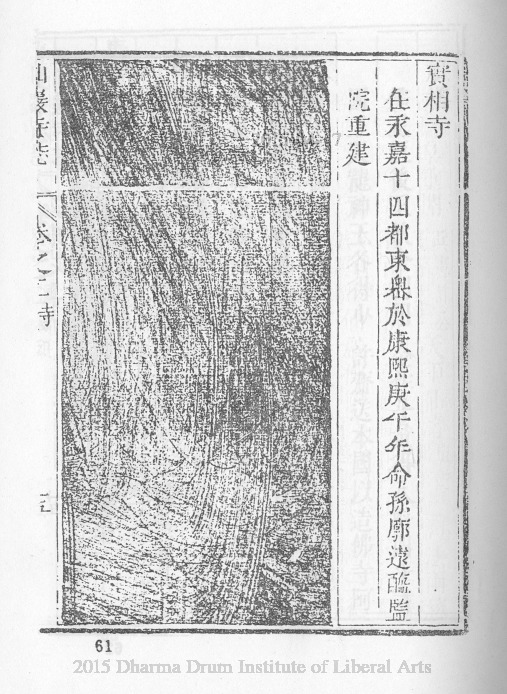 實相寺
在永嘉十四都東嶴於康熙庚午年命孫廓遠醯監
院重建
仙巖寺志
卷之二
寺
五
61
2015 Dharma Drum Institute of Liberal Arts